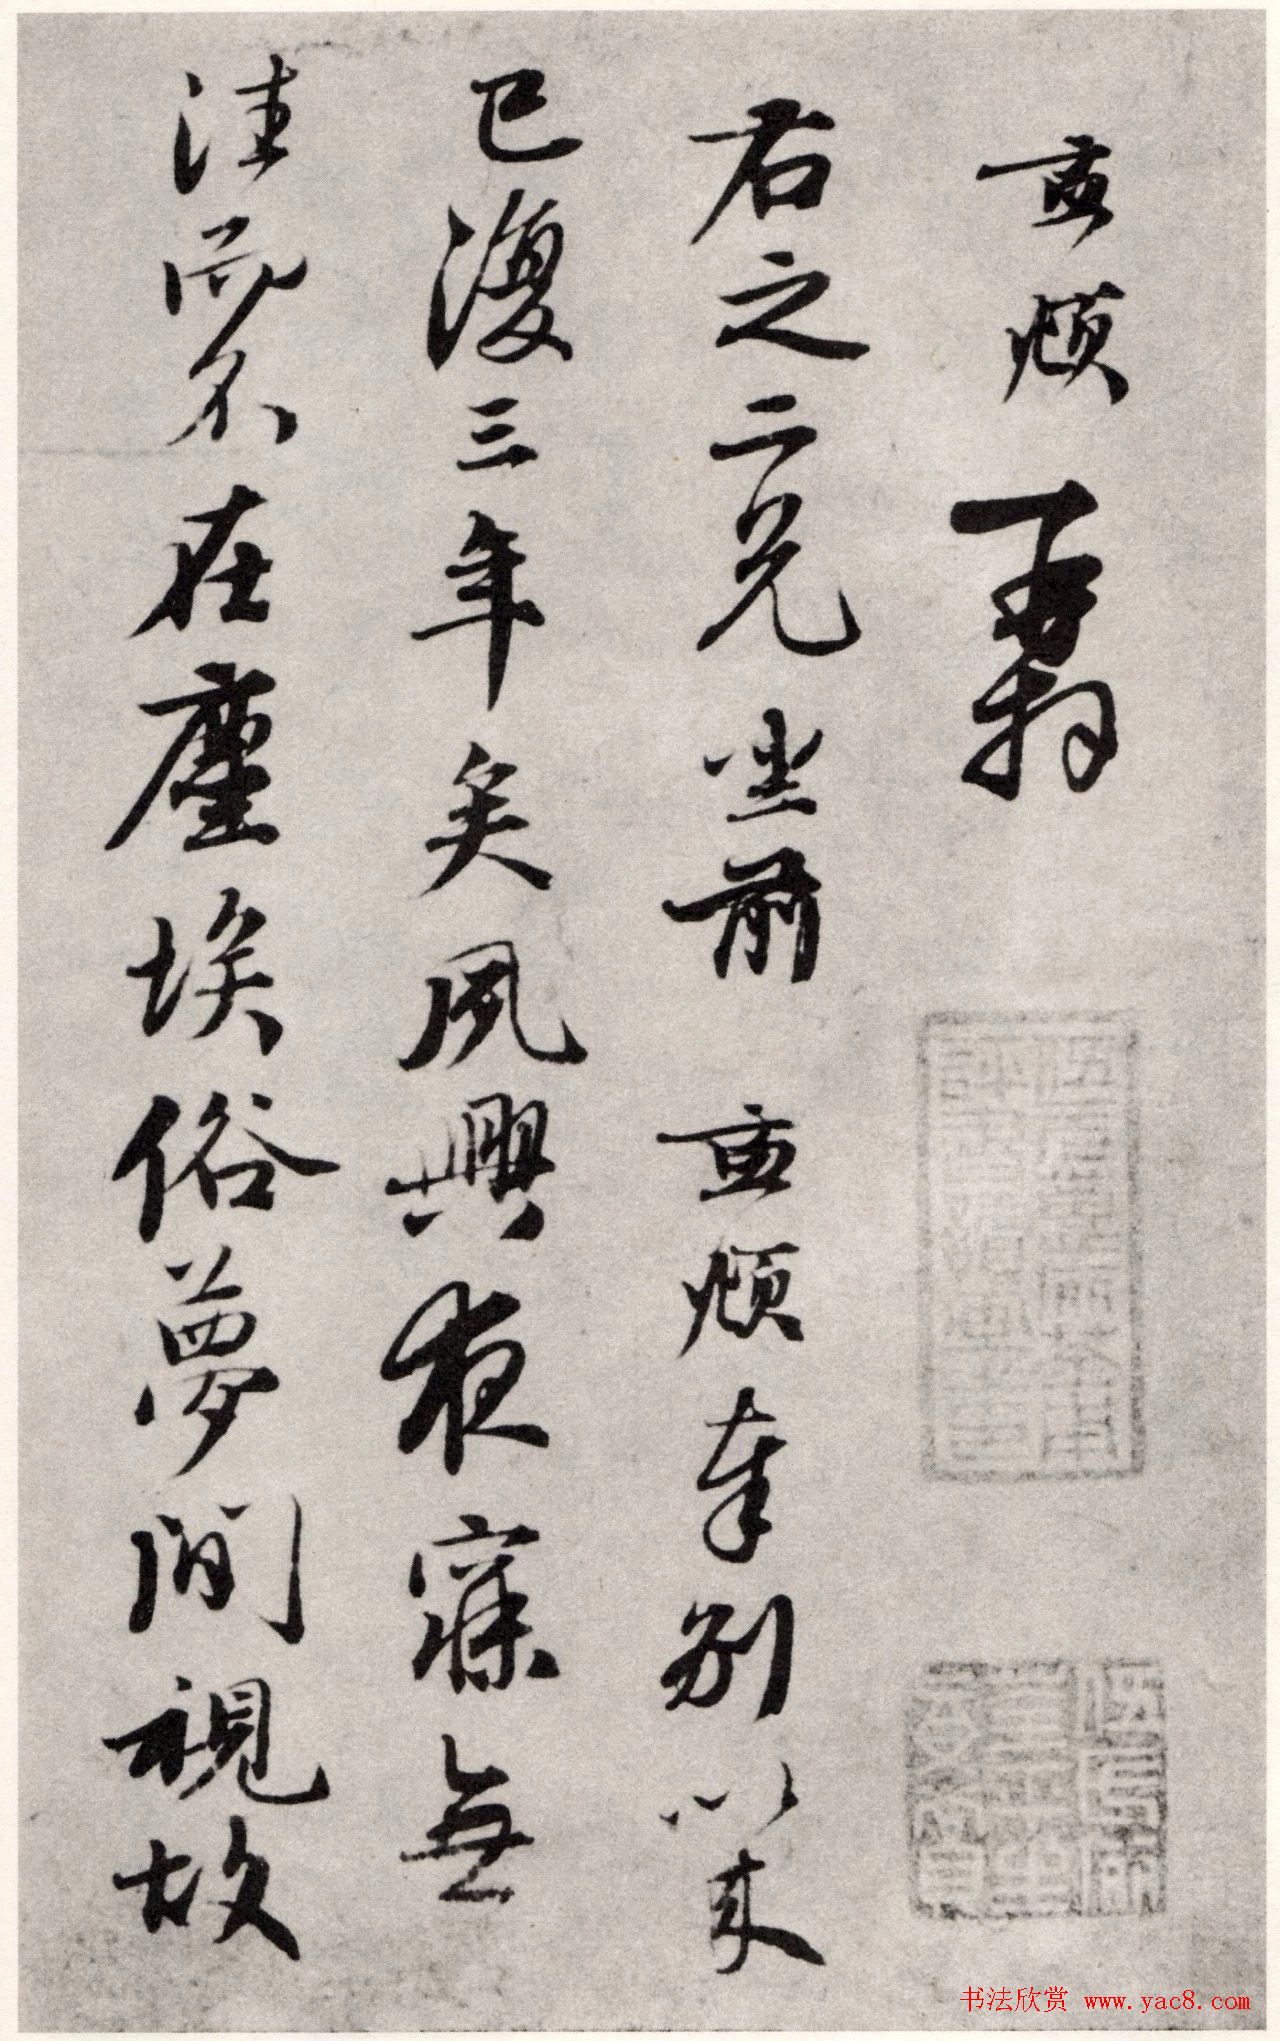 孟頫再拜
右之二兄坐前孟頫奉别以来
已复三年矣夙興夜寐無
往而不在塵埃俗夢間視故
书法欣赏 www.yac8.com